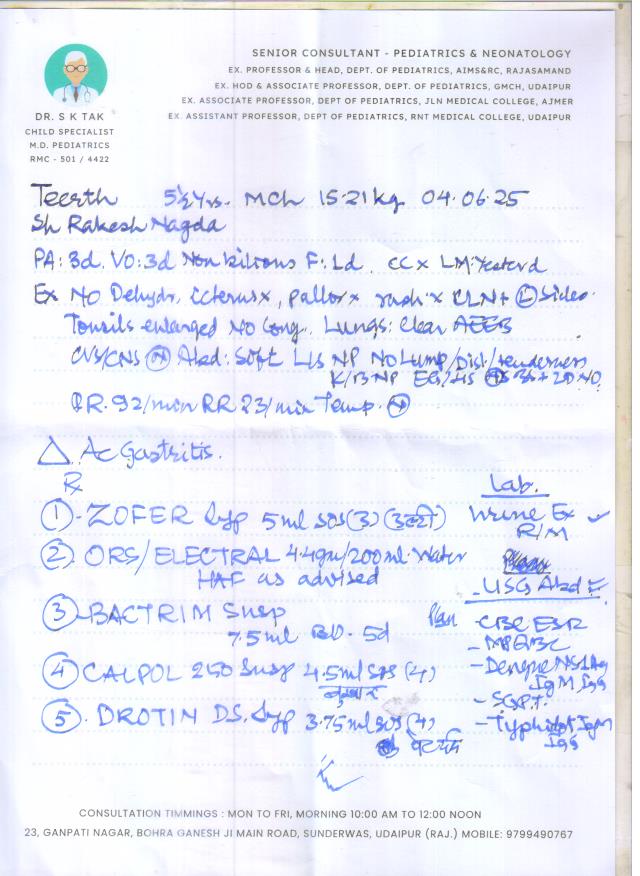 SENIOR CONSULTANT - PEDIATRICS & NEONATOLOGY
EX. PROFESSOR & HEAD, DEPT. OF PEDIATRICS, AIMS&RC, RAJASAMAND
EX. HOD & ASSOCIATE PROFESSOR, DEPT. OF PEDIATRICS, GMCH, UDAIPUR
EX. ASSOCIATE PROFESSOR, DEPT OF PEDIATRICS, JLN MEDICAL COLLEGE, AJMER
EX. ASSISTANT PROFESSOR, DEPT OF PEDIATRICS, RNT MEDICAL COLLEGE, UDAIPUR
DR. S K TAK
CHILD SPECIALIST
M.D. PEDIATRICS
RMC - 501 / 4422
Teerth 5½ Yrs. MCh 15.21 kg 04.06.25
Sh Rakesh Nagda
PA: 3d. VO: 3d Non bilious F: 1d. CCx LM: Yesterd
Ex No Dehydr. Icterus x, pallor x rash x CLN+ (L) Sides.
Tonsils enlarged No Cong. Lungs: Clear AEEB
CVS/CNS (N) Abd: Soft L/S NP No Lump/Dist/tenderness
K/B NP
PR. 92/min RR 23/min Temp. (N)
△. Ac Gastritis.
Rx
① - ZOFER Syp 5ml sos (3) (उल्टी)
② - ORS/ELECTRAL 4.4gm/200ml Water
HAF as advised
③ - BACTRIM Susp
7.5ml BD. 5d
④ CALPOL 250 Susp 4.5ml sos (4)
बुखार
⑤ . DROTIN DS. Syp 3.75ml sos (4)
Lab.
Urine Ex ✓
R/M
- USG Abd
Plan - CBC ESR
- MP QBC
- Dengue NS1 Ag
IgM IgG
- SGPT.
- Typhidot IgM
IgG
CONSULTATION TIMMINGS : MON TO FRI, MORNING 10:00 AM TO 12:00 NOON
23, GANPATI NAGAR, BOHRA GANESH JI MAIN ROAD, SUNDERWAS, UDAIPUR (RAJ.) MOBILE: 9799490767